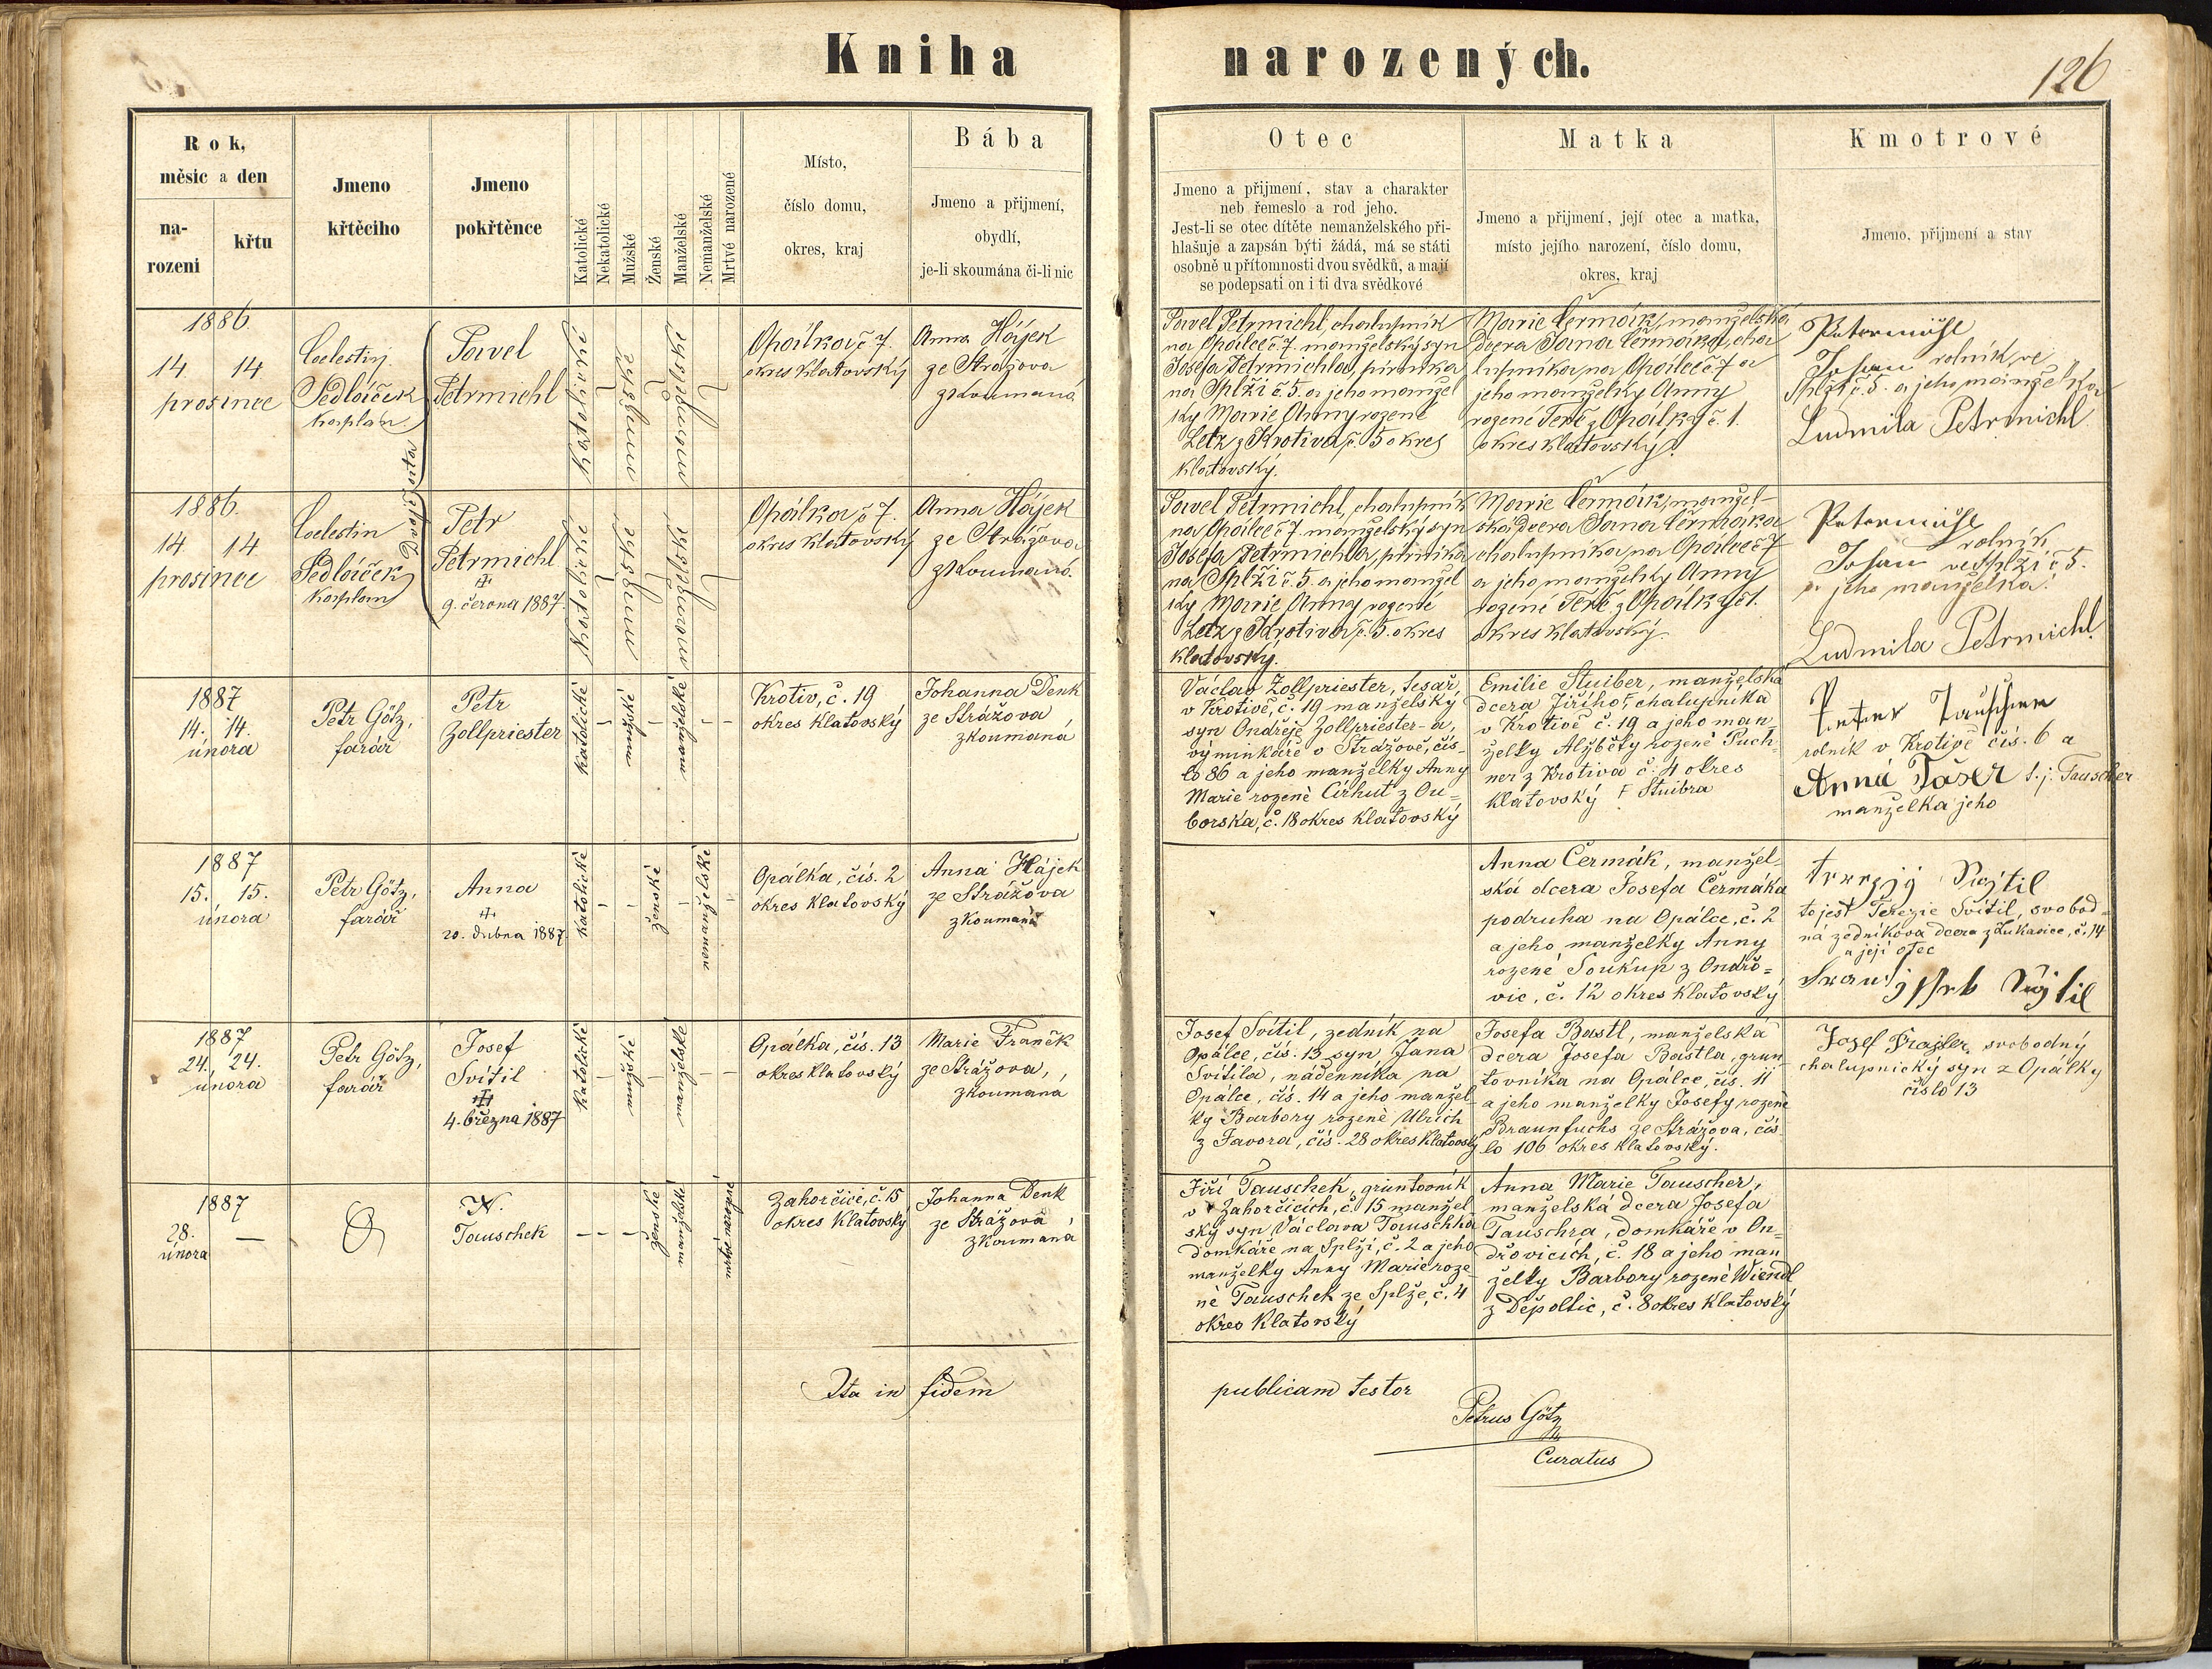 Kniha narozených.
126
Rok,
měsíc a den
na-
rozeni
křtu
Jmeno
křtěciho
Jmeno
pokřtěnce
Katolické
Nekatolické
Mužské
Ženské
Manželské
Nemanželské
Mrtvé narozené
Místo,
číslo domu,
okres, kraj
Bába
Jmeno a přijmení,
obydlí,
je-li skoumána či-li nic
Otec
Jmeno a přijmení, stav a charakter
neb řemeslo a rod jeho.
Jest-li se otec dítěte nemanželského při-
hlašuje a zapsán býti žádá, má se státi
osobně u přítomnosti dvou svědků, a mají
se podepsati on i ti dva svědkové
Matka
Jmeno a přijmení, její otec a matka,
místo jejího narození, číslo domu,
okres, kraj
Kmotrové
Jmeno, přijmení a stav
1886
14 14
prosince
Celestin
Sedláček
kaplan.
Dvojčata
Pavel
Petrmichl
Katolické
mužské
manželské
Opálka č 7.
okres Klatovský
Anna Hájek
ze Strážova
zkoumaná
Pavel Petrmichl, chalupník
na Opálce č 7. manželský syn
Josefa Petrmichla,
na Splži č. 5. a jeho manžel
ky Marie Anny rozené
Letz z Krotiva č. 5 okres
Klatovský.
Marie Čermák, manželská
dcera Jana Čermáka, cha
lupníka na Opálce č 7 a
jeho manželky Anny
rozené z Opálky č. 1.
okres Klatovský.
Petermichl
Johan rolník ve
Splži č 5. a jeho manželka
Ludmila Petrmichl
1886.
14 14
prosince
Celestin
Sedláček
kaplan
Petr
Petrmichl
9. června 1887.
Katolické
mužské
manželské
Opálka č 7.
okres Klatovský
Anna Hájek
ze Strážova
zkoumaná.
Pavel Petrmichl, chalupník
na Opálce č 7 manželský syn
Josefa Petrmichla,
na Splži č. 5. a jeho manžel
ky Marie Anny rozené
Letz z Krotiva č. 5. okres
Klatovský.
Marie Čermák, manžel-
ská dcera Jana Čermáka
chalupníka na Opálce č 7
a jeho manželky Anny
rozené z Opálky č 1.
okres Klatovský.
Petermichl
rolník
Johan ve Splži č 5.
a jeho manželka.
Ludmila Petrmichl.
1887
14. 14.
února
Petr Götz,
farář
Petr
Zollpriester
katolické
mužské
manželské
Krotiv, č. 19
okres Klatovský
Johanna Denk
ze Strážova,
zkoumaná
Václav Zollpriester, tesař
v Krotivě, č. 19 manželský
syn Ondřeje Zollpriester-a,
výminkáře v Strážově, čís-
lo 86 a jeho manželky Anny
Marie rozené Cirhut z Ou-
borska, č. 18 okres Klatovský
Emilie Stuiber, manželská
dcera Jiřího, chalupníka
v Krotivě č. 19 a jeho man
želky Alžběty rozené Puch-
ner z Krotiva č. 4 okres
Klatovský Stuibra
Peter Tauscher
rolník v Krotivě čís. 6 a
Anna Tašer t. j. Tauscher
manželka jeho
1887
15. 15.
února
Petr Götz,
farář
Anna
20. dubna 1887.
katolické
ženské
nemanželské
Opálka, čís. 2
okres Klatovský
Anna Hájek
ze Strážova
zkoumaná
Anna Čermák, manžel-
ská dcera Josefa Čermáka
podruha na Opálce, č. 2
a jeho manželky Anny
rozené Soukup z Ondřo-
vic, č. 12 okres Klatovský
to jest Terezie Svítil, svobod-
ná zedníkova dcera z Lukavice, č. 14
a její otec
1887
24. 24.
února
Petr Götz,
farář
Josef
Svítil
4. března 1887
katolické
mužské
manželské
Opálka, čís. 13
okres Klatovský
Marie Franěk
ze Strážova,
zkoumaná
Josef Svítil, zedník na
Opálce, čís. 13 syn Jana
Svítila, nádenníka na
Opálce, čís. 14 a jeho manžel-
ky Barbory rozené Ulrich
z Javora, čís. 28 okres Klatovský
Josefa Bastl, manželská
dcera Josefa Bastla, grun
tovníka na Opálce, čís. 11
a jeho manželky Josefy rozené
Braunfuchs ze Strážova, čís-
lo 106 okres Klatovský.
Josef svobodný
chalupnický syn z Opálky
číslo 13
1887
28. —
února
N.
Tauschek
ženské
manželské
mrtvě narozené
Zahorčice, č. 15
okres Klatovský
Johanna Denk
ze Strážova,
zkoumaná
Jiří Tauschek, gruntovník
v Zahorčicích, č. 15 manžel
ský syn Václava Tauschka
domkáře na Splži, č. 2 a jeho
manželky Anny Marie roze
né Tauschek ze Splže, č. 4
okres Klatovský
Anna Marie Tauscher,
manželská dcera Josefa
Tauschra, domkáře v On-
dřovicích, č. 18 a jeho man
želky Barbory rozené Wiendl
z Děpoltic, č. 8 okres Klatovský
Ita in fidem publicam testor
Petrus Götz
Curatus